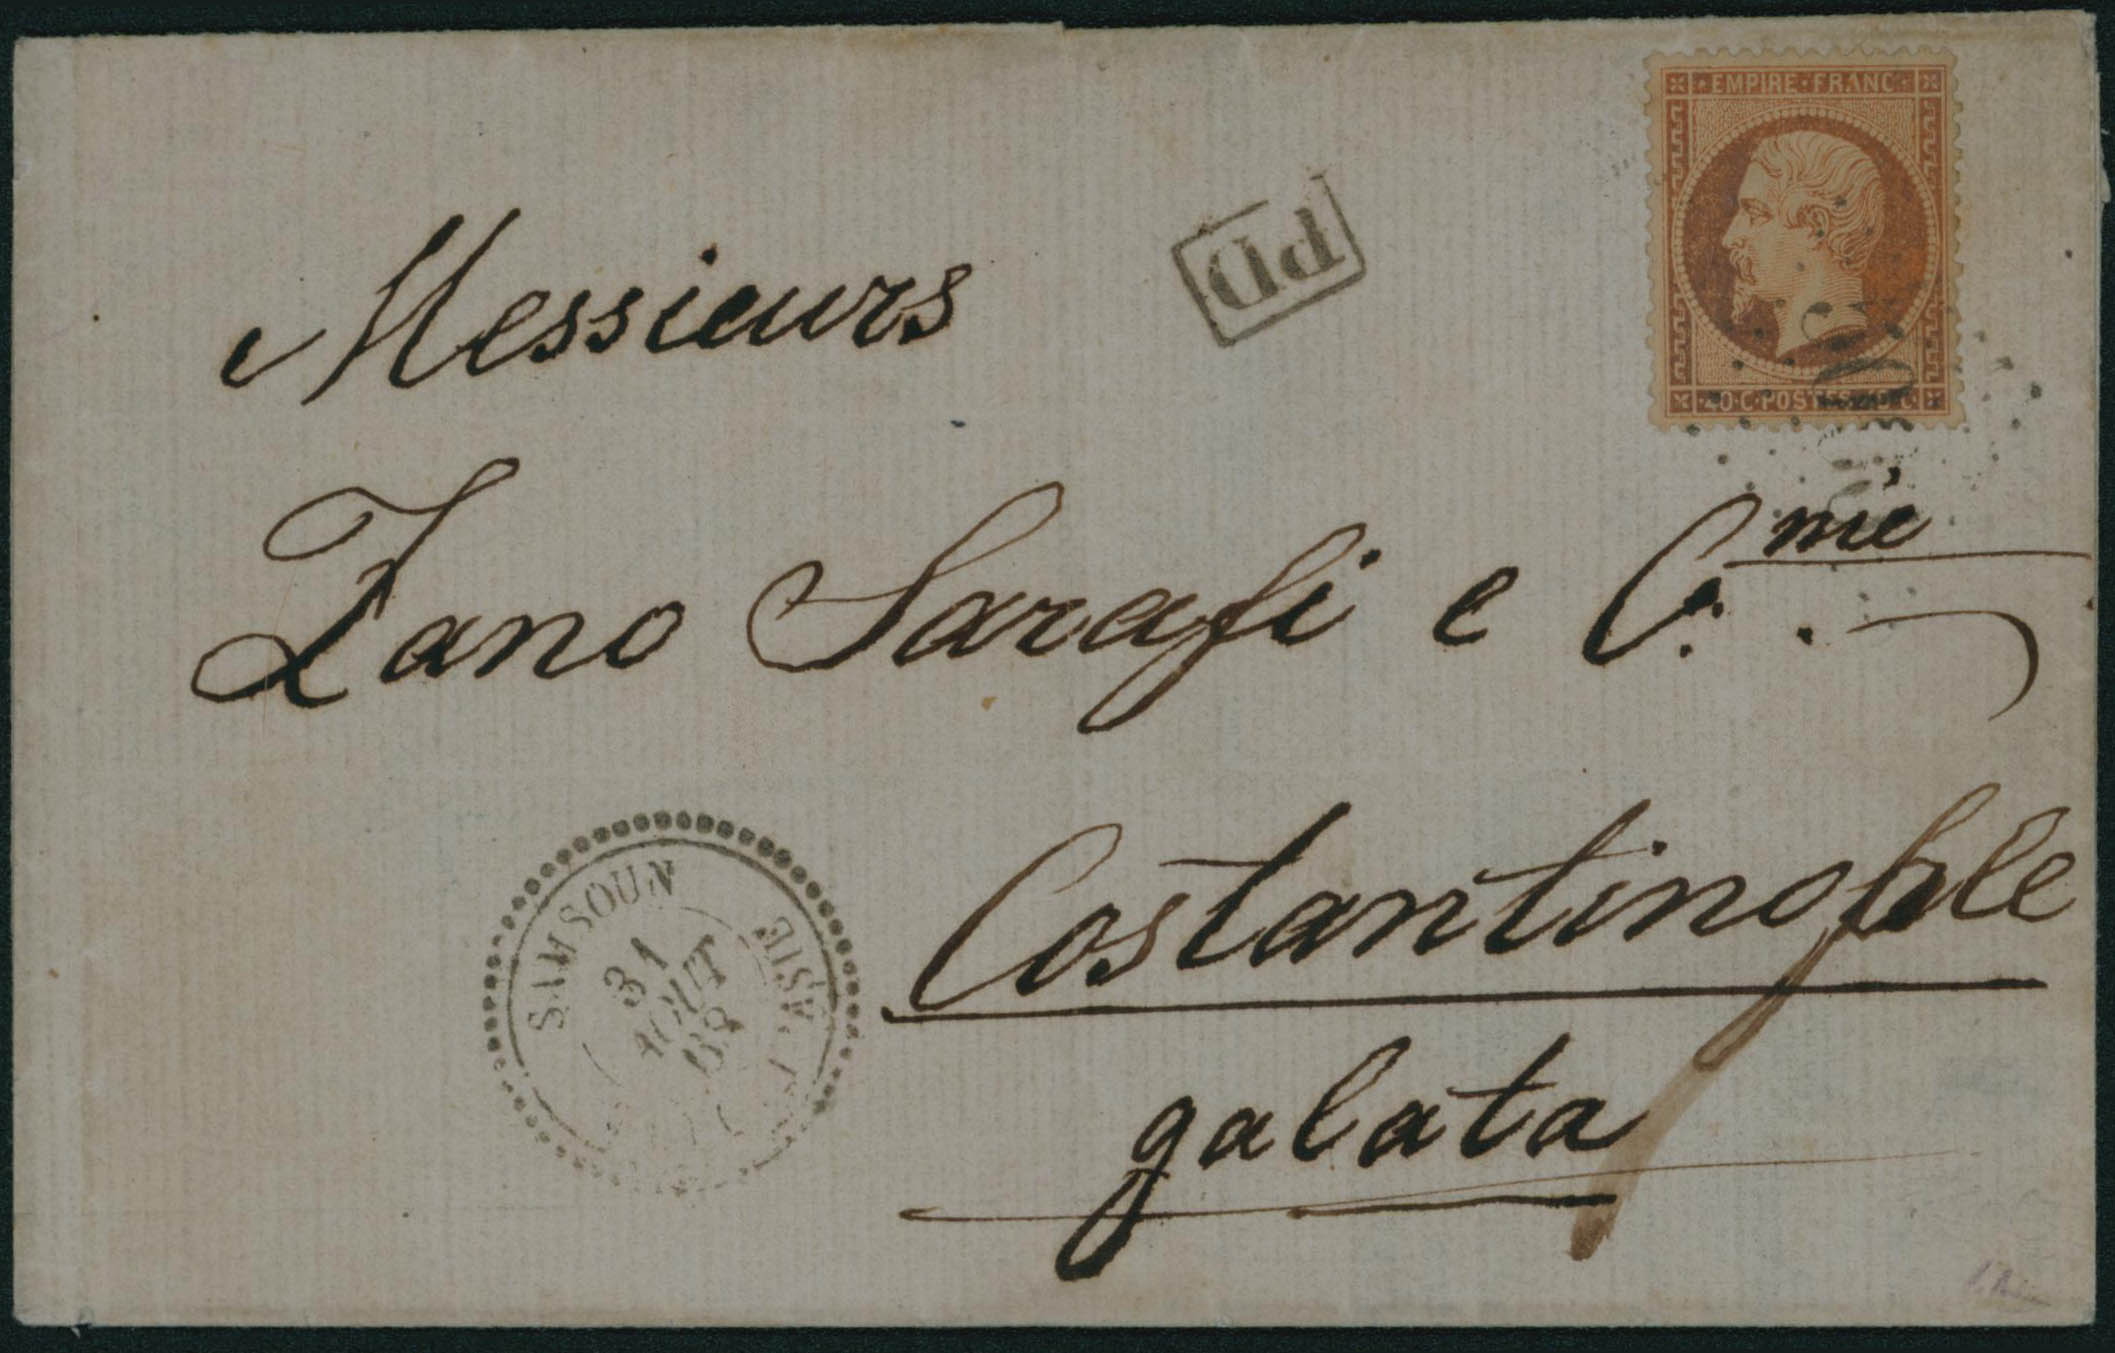 EMPIRE FRANC
40 C POSTES 40 C
PD
Messieurs
Zano Sarafi e C.mie
SAMSOUN
ASIE
31
AOUT
68
Costantinople
galata